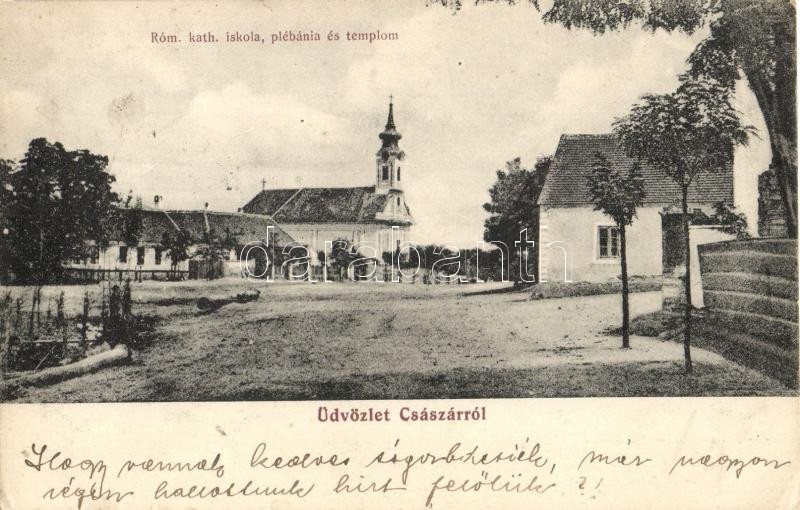 Róm. kath. iskola, plébánia és templom
darabanth
Üdvözlet Császárról
Hogy vannak kedves sógorbátsiék, már nagyon
régen hallottunk hírt felőlük ?!